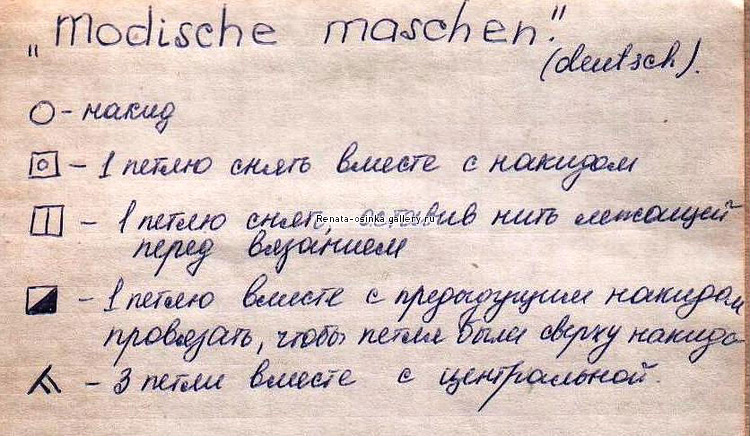 „Modische maschen."
(deutsch).
О - накид
- 1 петлю снять вместе с накидом
- 1 петлю снять, оставив нить лежащей
перед вязанием
Renata-osinka.gallery.ru
- 1 петлю вместе с предыдущим накидом
провязать, чтобы петля была сверху накида
- 3 петли вместе с центральной.